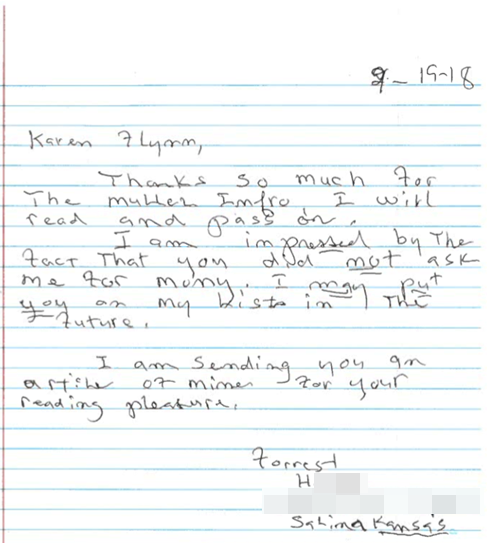 9-19-18
Karen Flynn,
Thanks so much for
The muller Infro. I will
read and pass on.
I am impressed by The
fact That you did not ask
me for mony. I may put
you on my list in The
Future.
I am sending you an
artile of mine for your
reading pleasure.
Forrest
H
Salina Kansas